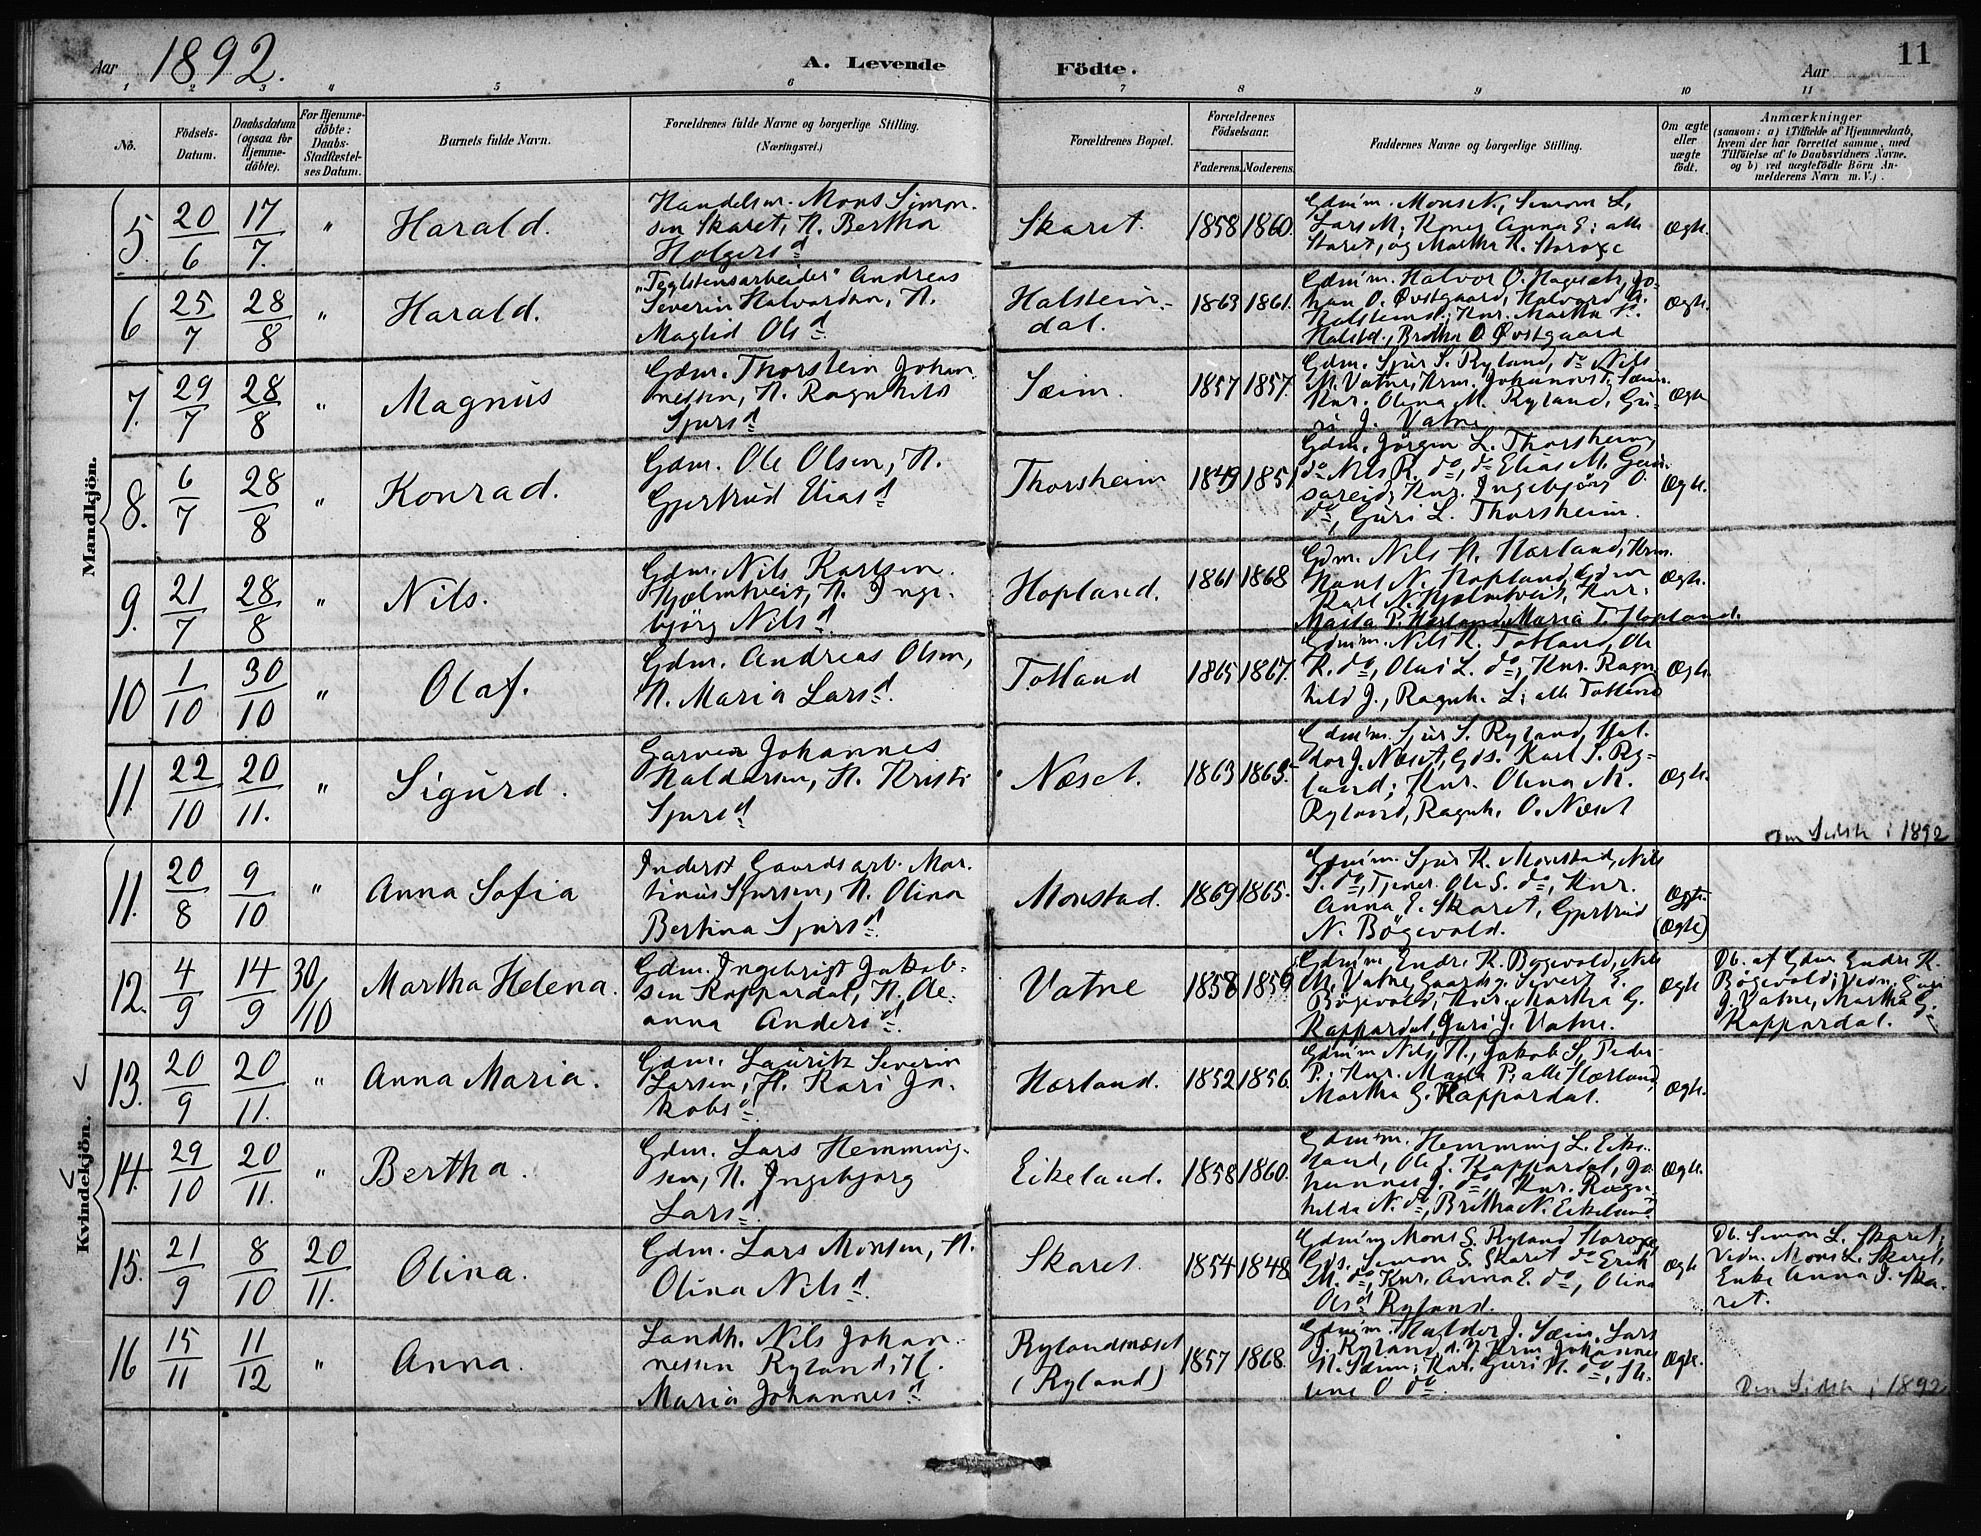 Aar 1892. A. Levende Födte. Aar 11
1 2 3 4 5 6 7 8 9 10 11
No.
Födsels-
Datum.
Daabsdatum
(ogsaa for
Hjemme-
döbte).
For Hjemme-
döbte:
Daabs-
Stadfæstel-
ses Datum.
Barnets fulde Navn.
Forældrenes fulde Navne og borgerlige Stilling.
(Næringsvei.)
Forældrenes Bopæl.
Forældrenes
Födselsaar.
Faderens. Moderens.
Faddernes Navne og borgerlige Stilling.
Om ægte
eller
uægte
födt.
Anmærkninger
(saasom: a) i Tilfælde af Hjemmedaab,
hvem der har forrettet samme, med
Tilföielse af to Daabsvidners Navne,
og b) ved uægtefödte Börn An-
melderens Navn m. V.).
Mandkjön.
5. 20/6 17/7. " Harald.
Handelsm. Mons Simon-
sen Skaret, H. Bertha
Holgersd
Skaret. 1858 1860.
Gdm'm. Mons N., Simon L.,
Lars M; Koner Anna E; alle
Skaret, og Martha K.
Ægte.
6 25/7 28/8 " Harald.
"Teglstensarbeider" Andreas
Severin Halvorsen, H.
Maglid Olsd
Halstein-
dal. 1863 1861.
Gdm'm. Halvor O. Jo-
han O. Øvstgaard, Halvard
Knr. Martha
Halstd., Bertha O. Øvstgaard
Ægte.
7. 29/7 28/8 " Magnus
Gdm. Thorstein Johan-
nessen, H. Ragnhild
Sjursd
Sæim. 1857 1857.
Gdm. Sjur S. Ryland, do Nils
M. Vatne, Krm. Johannes T. Sæim.
Knr. Olina M. Ryland, Gu-
ri J. Vatne
Ægte
8. 6/7 28/8 " Konrad.
Gdm. Ole Olsen, H.
Gjertrud Eliasd
Thorsheim 1849 1851.
Gdm. Jörgen L. Thorsheim,
do Nils R. do, do Elias M.
Knr. Ingebjörg O.
do, Guri L. Thorsheim.
Ægte.
9. 21/7 28/8 " Nils.
Gdm. Nils Karlsen
Hjelmtveit, H. Inge-
björg Nilsd
Hopland. 1861 1868
Gdm. Nils H. Hærland, Krm.
Hans N. Hopland, Gdm
Karl N. Hjelmtveit, Knr.
Marta P. Hærland, Maria T. Hopland.
Ægte.
10 1/10 30/10 " Olaf.
Gdm. Andreas Olsen,
H. Maria Larsd.
Totland 1865 1867.
Gdm'm. Nils K. Totland, Ole
R. do, Olai L. do; Knr. Ragn-
hild J., Ragnh. L; alle Totland
Ægte.
11. 22/10 20/11. " Sigurd.
Garver Johannes
Haldorsen, H. Kristi
Sjursd
Næset. 1863 1865.
Gdm'm. Sjur S. Ryland, Hal-
dor J. Næset, Gds. Karl S. Ry-
land; Knr. Olina M.
Ryland, Ragnh. O. Næset
Ægte.
Den Sidste i 1892
Kvindekjön.
11. 20/8 9/10 " Anna Sofia
Inderst Gaardsarb. Mar-
tinus Sjursen, H. Olina
Bertina Sjursd.
Monstad. 1869 1865.
Gdm'm. Sjur K. Monstad, Nils
S. do, Tjener Ole S. do, Knr.
Anna E. Skaret, Gjertrud
N. Bögevold.
Ægte.
(Ægte)
12. 4/9 14/9 30/10 Martha Helena.
Gdm. Ingebrigt Jakob-
sen Kappardal, H. Ole-
anna Andersd.
Vatne 1858 1859
Gdm'm. Endre K. Bögevold, Nils
M. Vatne, Gaardsg. Sivert E.
Bögevold, Knr. Martha G.
Kappardal, Guri J. Vatne.
Ægte
Db. af Gdm. Endre K.
Bögevold; Vidn. Guri
J. Vatne, Martha G.
Kappardal.
13. 20/9 20/11. " Anna Maria.
Gdm. Lauritz Severin
Larsen, H. Kari Ja-
kobsd.
Hærland. 1852 1856.
Gdm'm Nils H., Jakob S., Peder
P.; Knr. Marta P; alle Hærland,
Martha G. Kappardal.
Ægte.
14. 29/10 20/11. " Bertha.
Gdm. Lars Hemming-
sen, H. Ingebjörg
Larsd.
Eikeland. 1858 1860.
Gdm'm. Hemming L. Eike-
land, Ole J. Kappardal, Jo-
hannes J. do, Knr. Ragn-
hilda N. do, Britha N. Eikeland
Ægte.
15. 21/9 8/10 20/11. Olina.
Gdm. Lars Monsen, H.
Olina Nilsd.
Skaret. 1854 1848
Gdm'm Mons S. Ryland
Gds. Simon S. Skaret do Erik
M. do; Knr. Anna E. do, Olina
Olsd Ryland.
Ægte
Db. Simon L. Skaret;
Vidn. Mons L. Skaret,
Enke Anna J. Ska-
ret.
16 15/11 11/12 " Anna.
Landh. Nils Johan-
nessen Ryland, H.
Maria Johannesd
Rylandsnæset
(Ryland) 1857 1868.
Gdm'm. Haldor J. Sæim, Lars
J. Ryland, Krm Johannes
H. Sæim; Knr. Guri H. do,
O do
Ægte.
Den Sidste i 1892